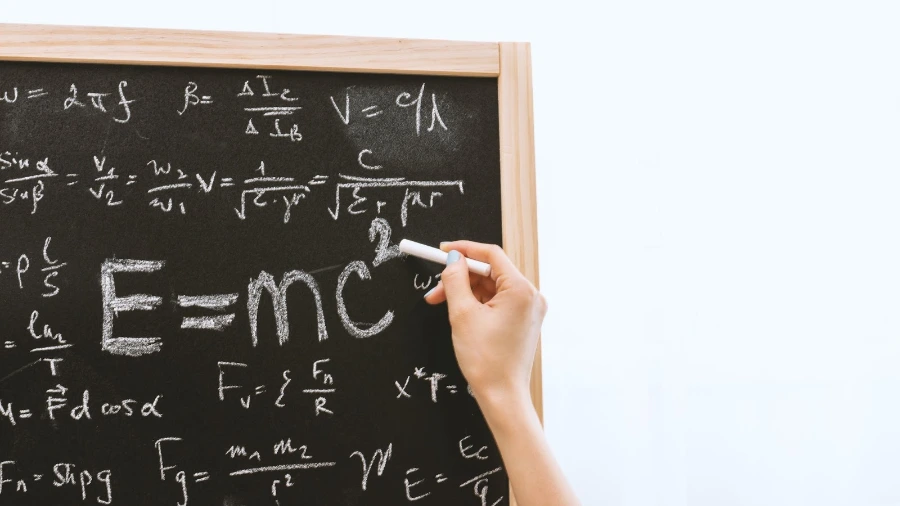 ω = 2πf β = ΔI_C / ΔI_B V = c/λ
sin α / sin β = v₁ / v₂ = w₂ / w₁ V = 1 / √(ε·μ) = c / √(εr μr)
= ρ l / S
E = mc²
ω =
= ln₂ / T
F_v = ξ F_n / R x*T =
M = F⃗ d cos α
F_n = Shρg F_g = m₁ m₂ / r² E = E_c / q